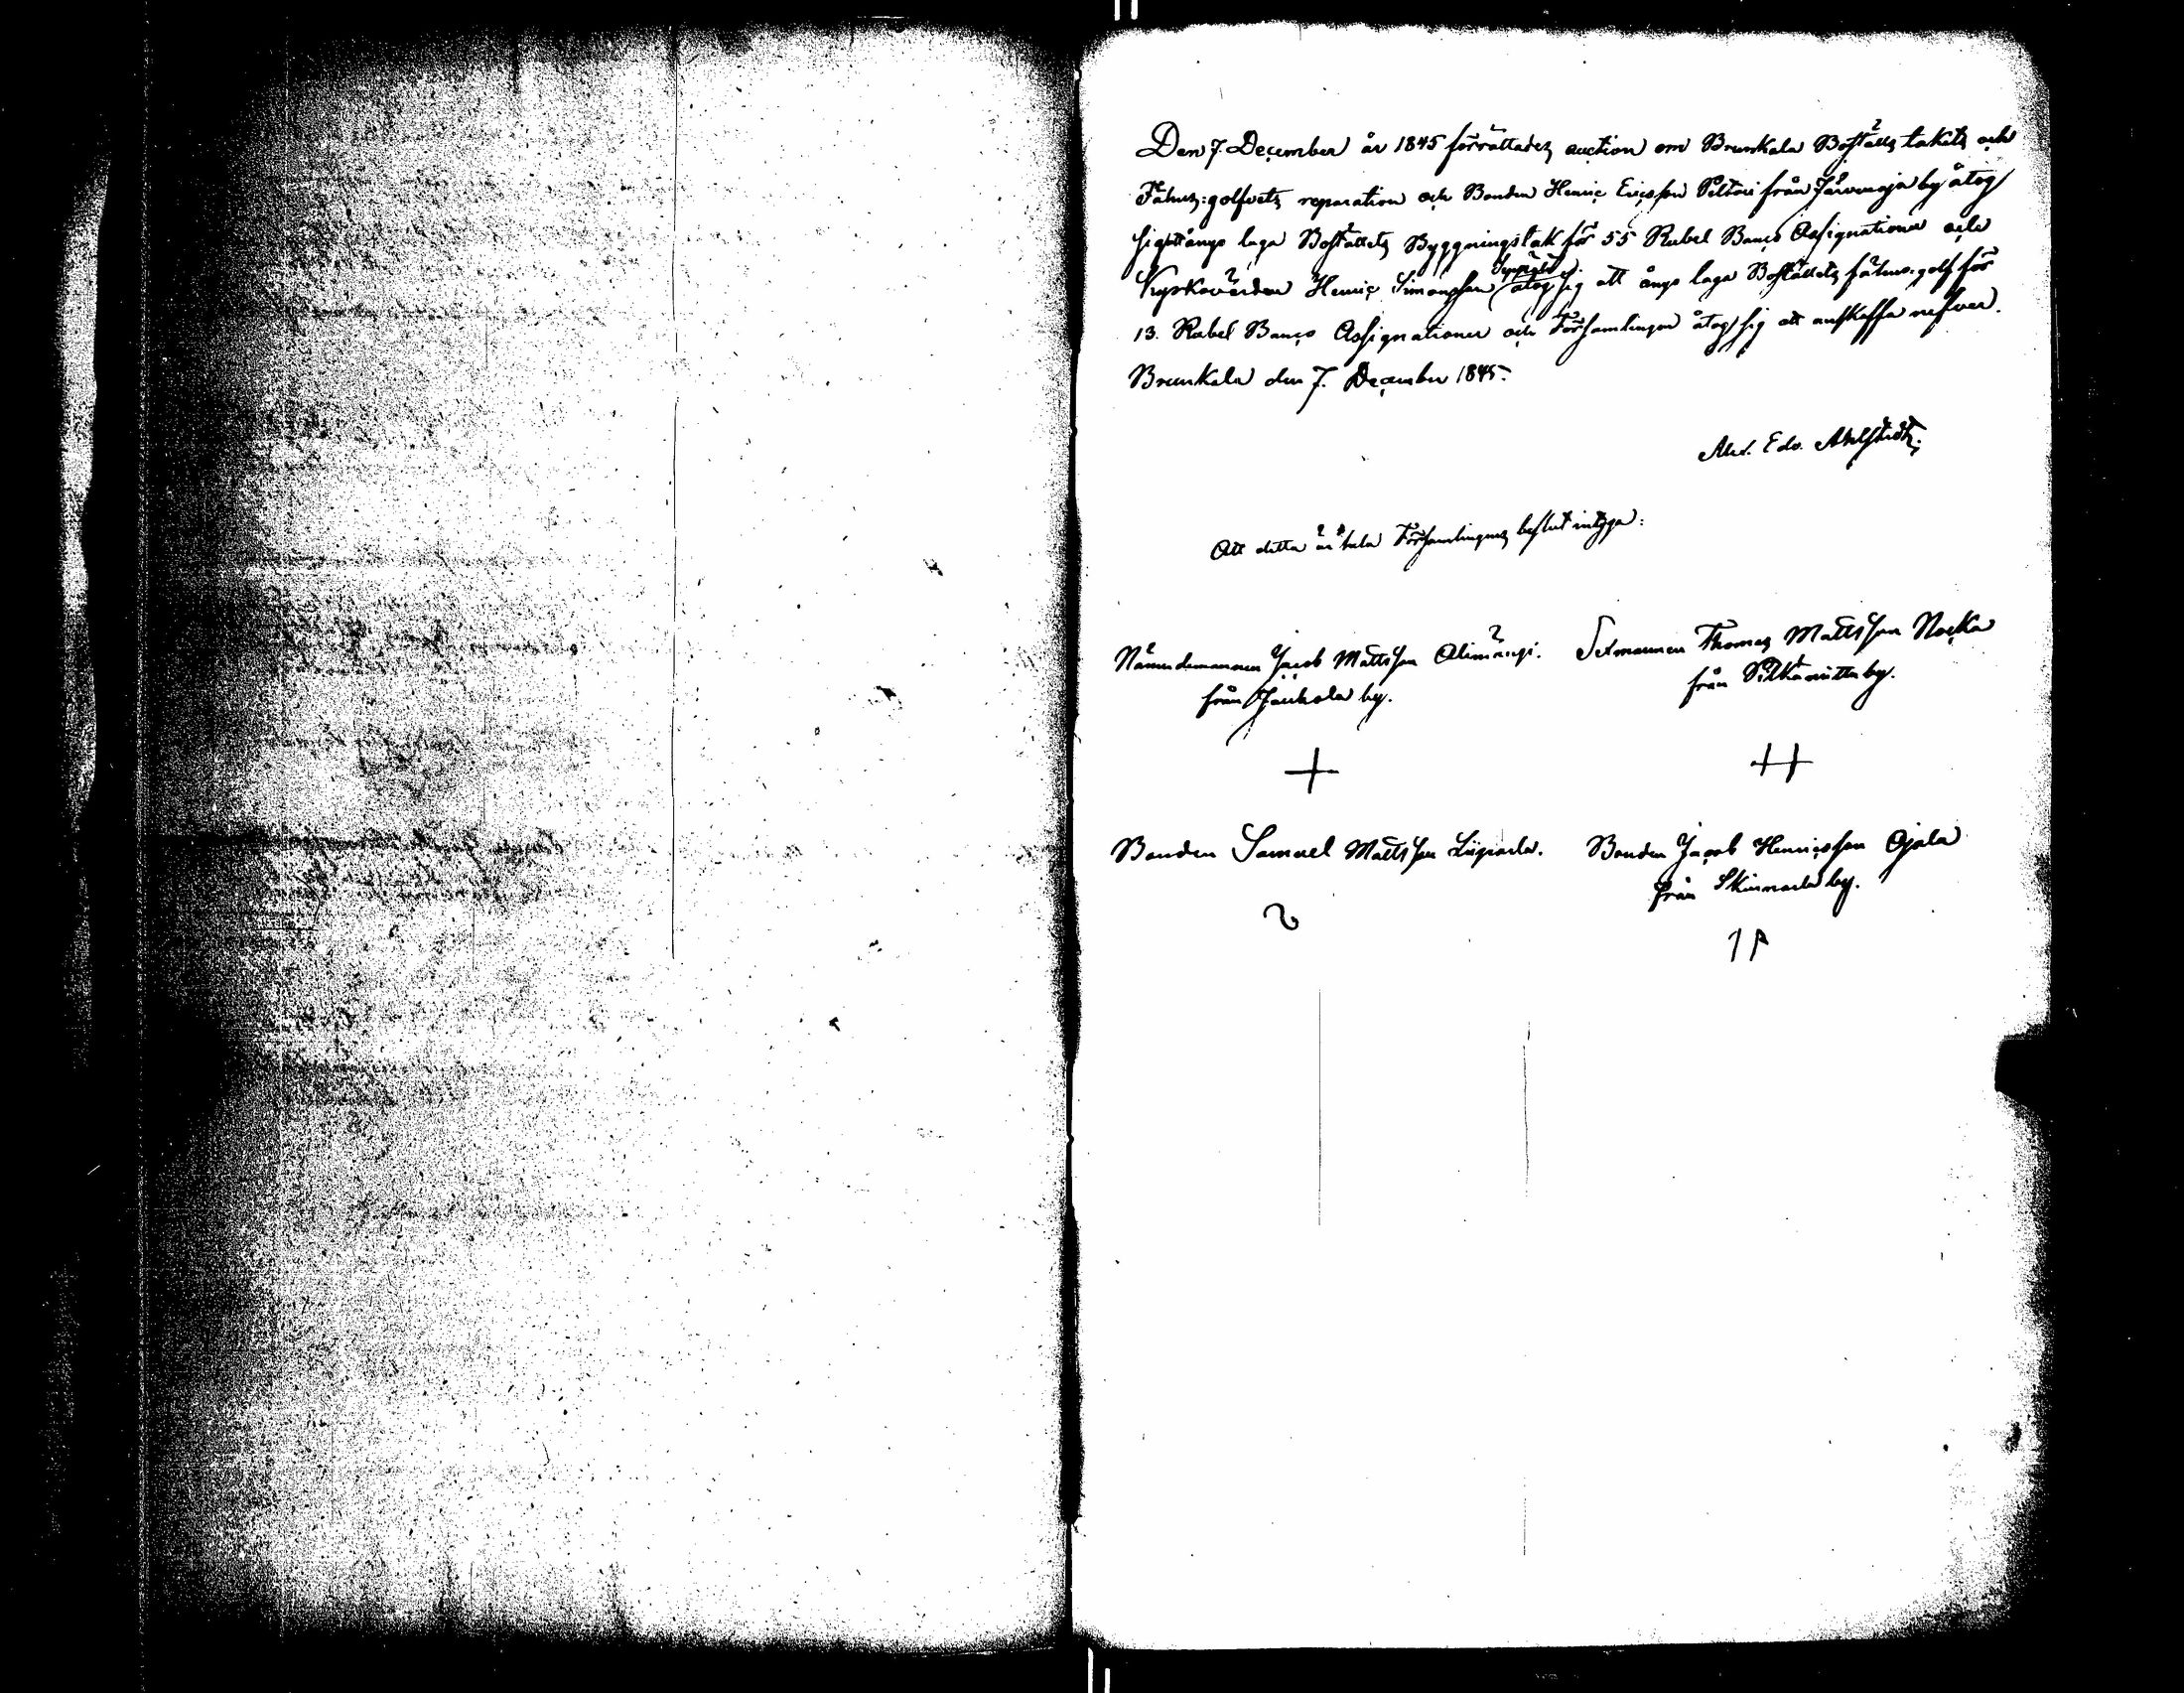 Den 7 December år 1845 förrättades auction om Brunkala Boställs takets och
Fähus: golfvets reparation och Bonden Henric Ericsson Peltari från Järvenoja by åtog
sig att ånyo laga Boställets Byggningstak för 55 Rubel Banco Assignationer och
Kyrkovärden Henric Simonsson Seppälä åtog sig att ånyo laga Boställets fähus. golf för
13. Rubel Banco Assignationer och Församlingen åtog sig att anskaffa näfver.
Brunkala den 7. December 1845.
Alex. Edv. Ahlstedt.
Att detta är hela Församlingens beslut intyga:
Nämndemannen Jacob Mattsson Alimängi. Sexmannen Thomas Mattsson Nocka
från by. från by.
Bonden Samuel Mattsson Bonden Jacob Henricsson Ojala
från Skinnarla by.